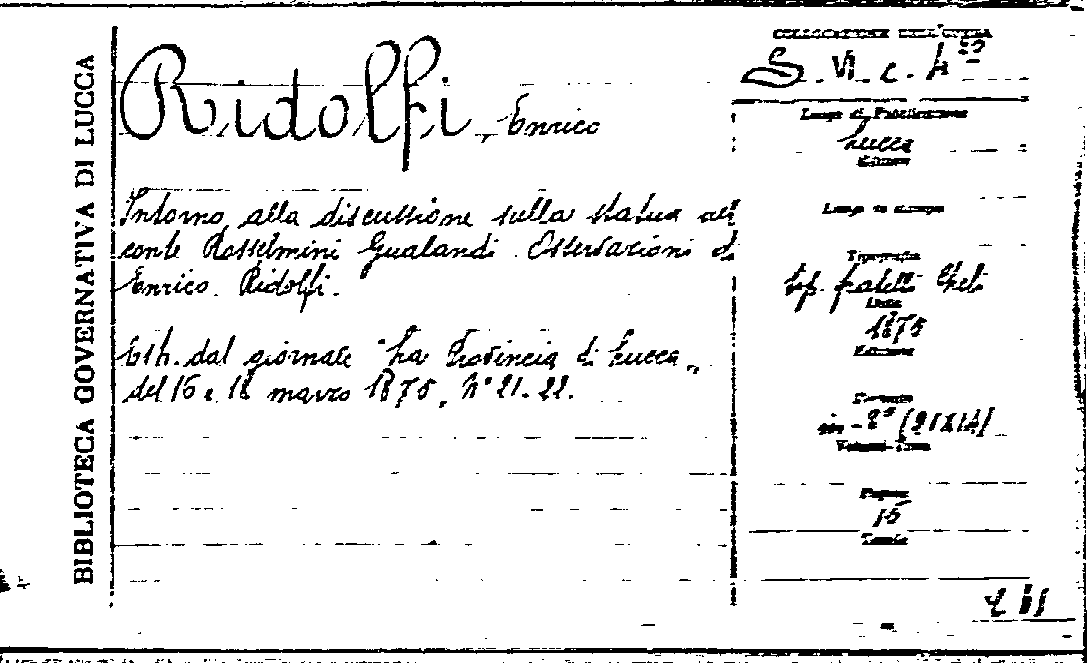 BIBLIOTECA GOVERNATIVA DI LUCCA
Ridolfi, Enrico
Intorno alla discussione sulla statua del
conte Rosselmini Gualandi. Osservazioni di
Enrico Ridolfi.
Estr. dal giornale "La Provincia di Lucca"
del 16 e 18 marzo 1875, N° 21. 22.
COLLOCAZIONE DELL'OPERA
S. VI. c.
Luogo di Pubblicazione
Lucca
Editore
Luogo di stampa
Tipografia
tip. fratelli
Data
1875
Edizione
Formato
in-8° (21X14)
Volumi-Tomi
Pagine
15
Tavole